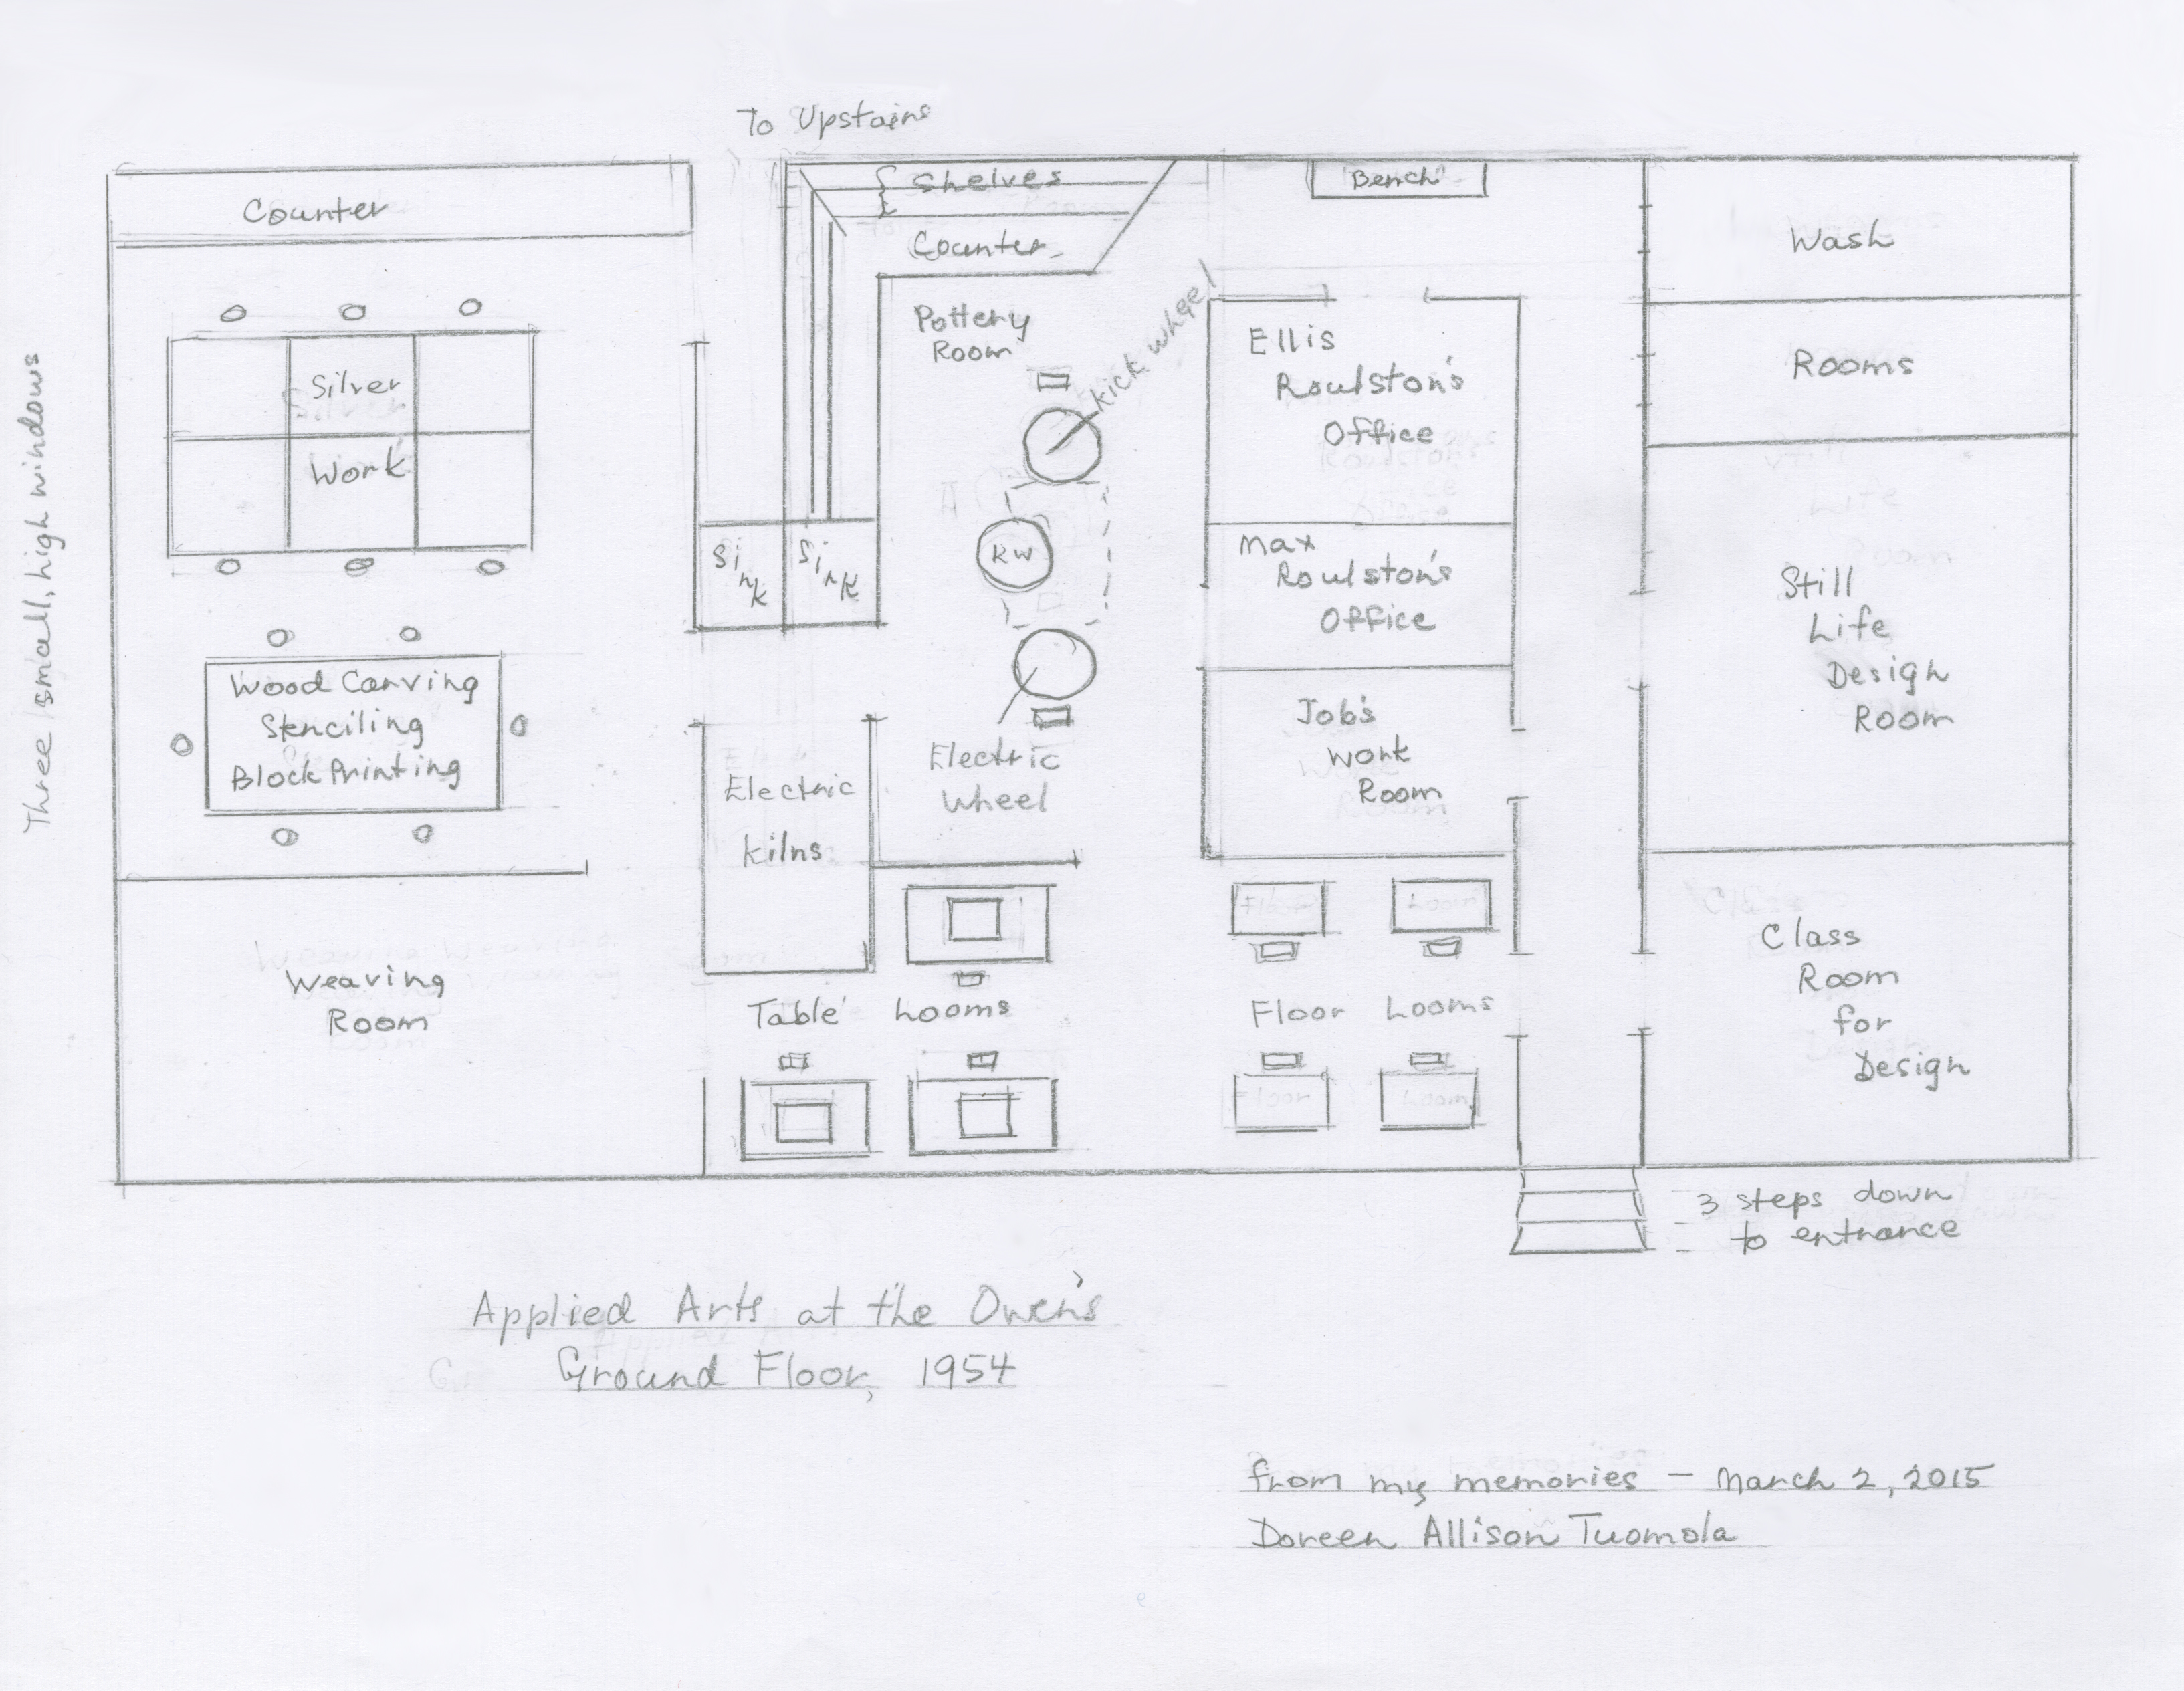 To Upstairs
Counter
{ Shelves
Counter
Bench
Wash
Rooms
Three small, high windows
Silver
Work
Pottery
Room
Kick wheel
Ellis
Roulston's
Office
Sink
Sink
RW
Max
Roulston's
Office
Still
Life
Design
Room
Wood Carving
Stenciling
Block Printing
Electric
Kilns
Electric
Wheel
Job's
Work
Room
Weaving
Room
Table Looms
Floor
Loom
Floor Looms
Floor
Loom
Class
Room
for
Design
3 steps down
to entrance
Applied Arts at the Owen's
Ground Floor, 1954
from my memories - March 2, 2015
Doreen Allison Tuomola